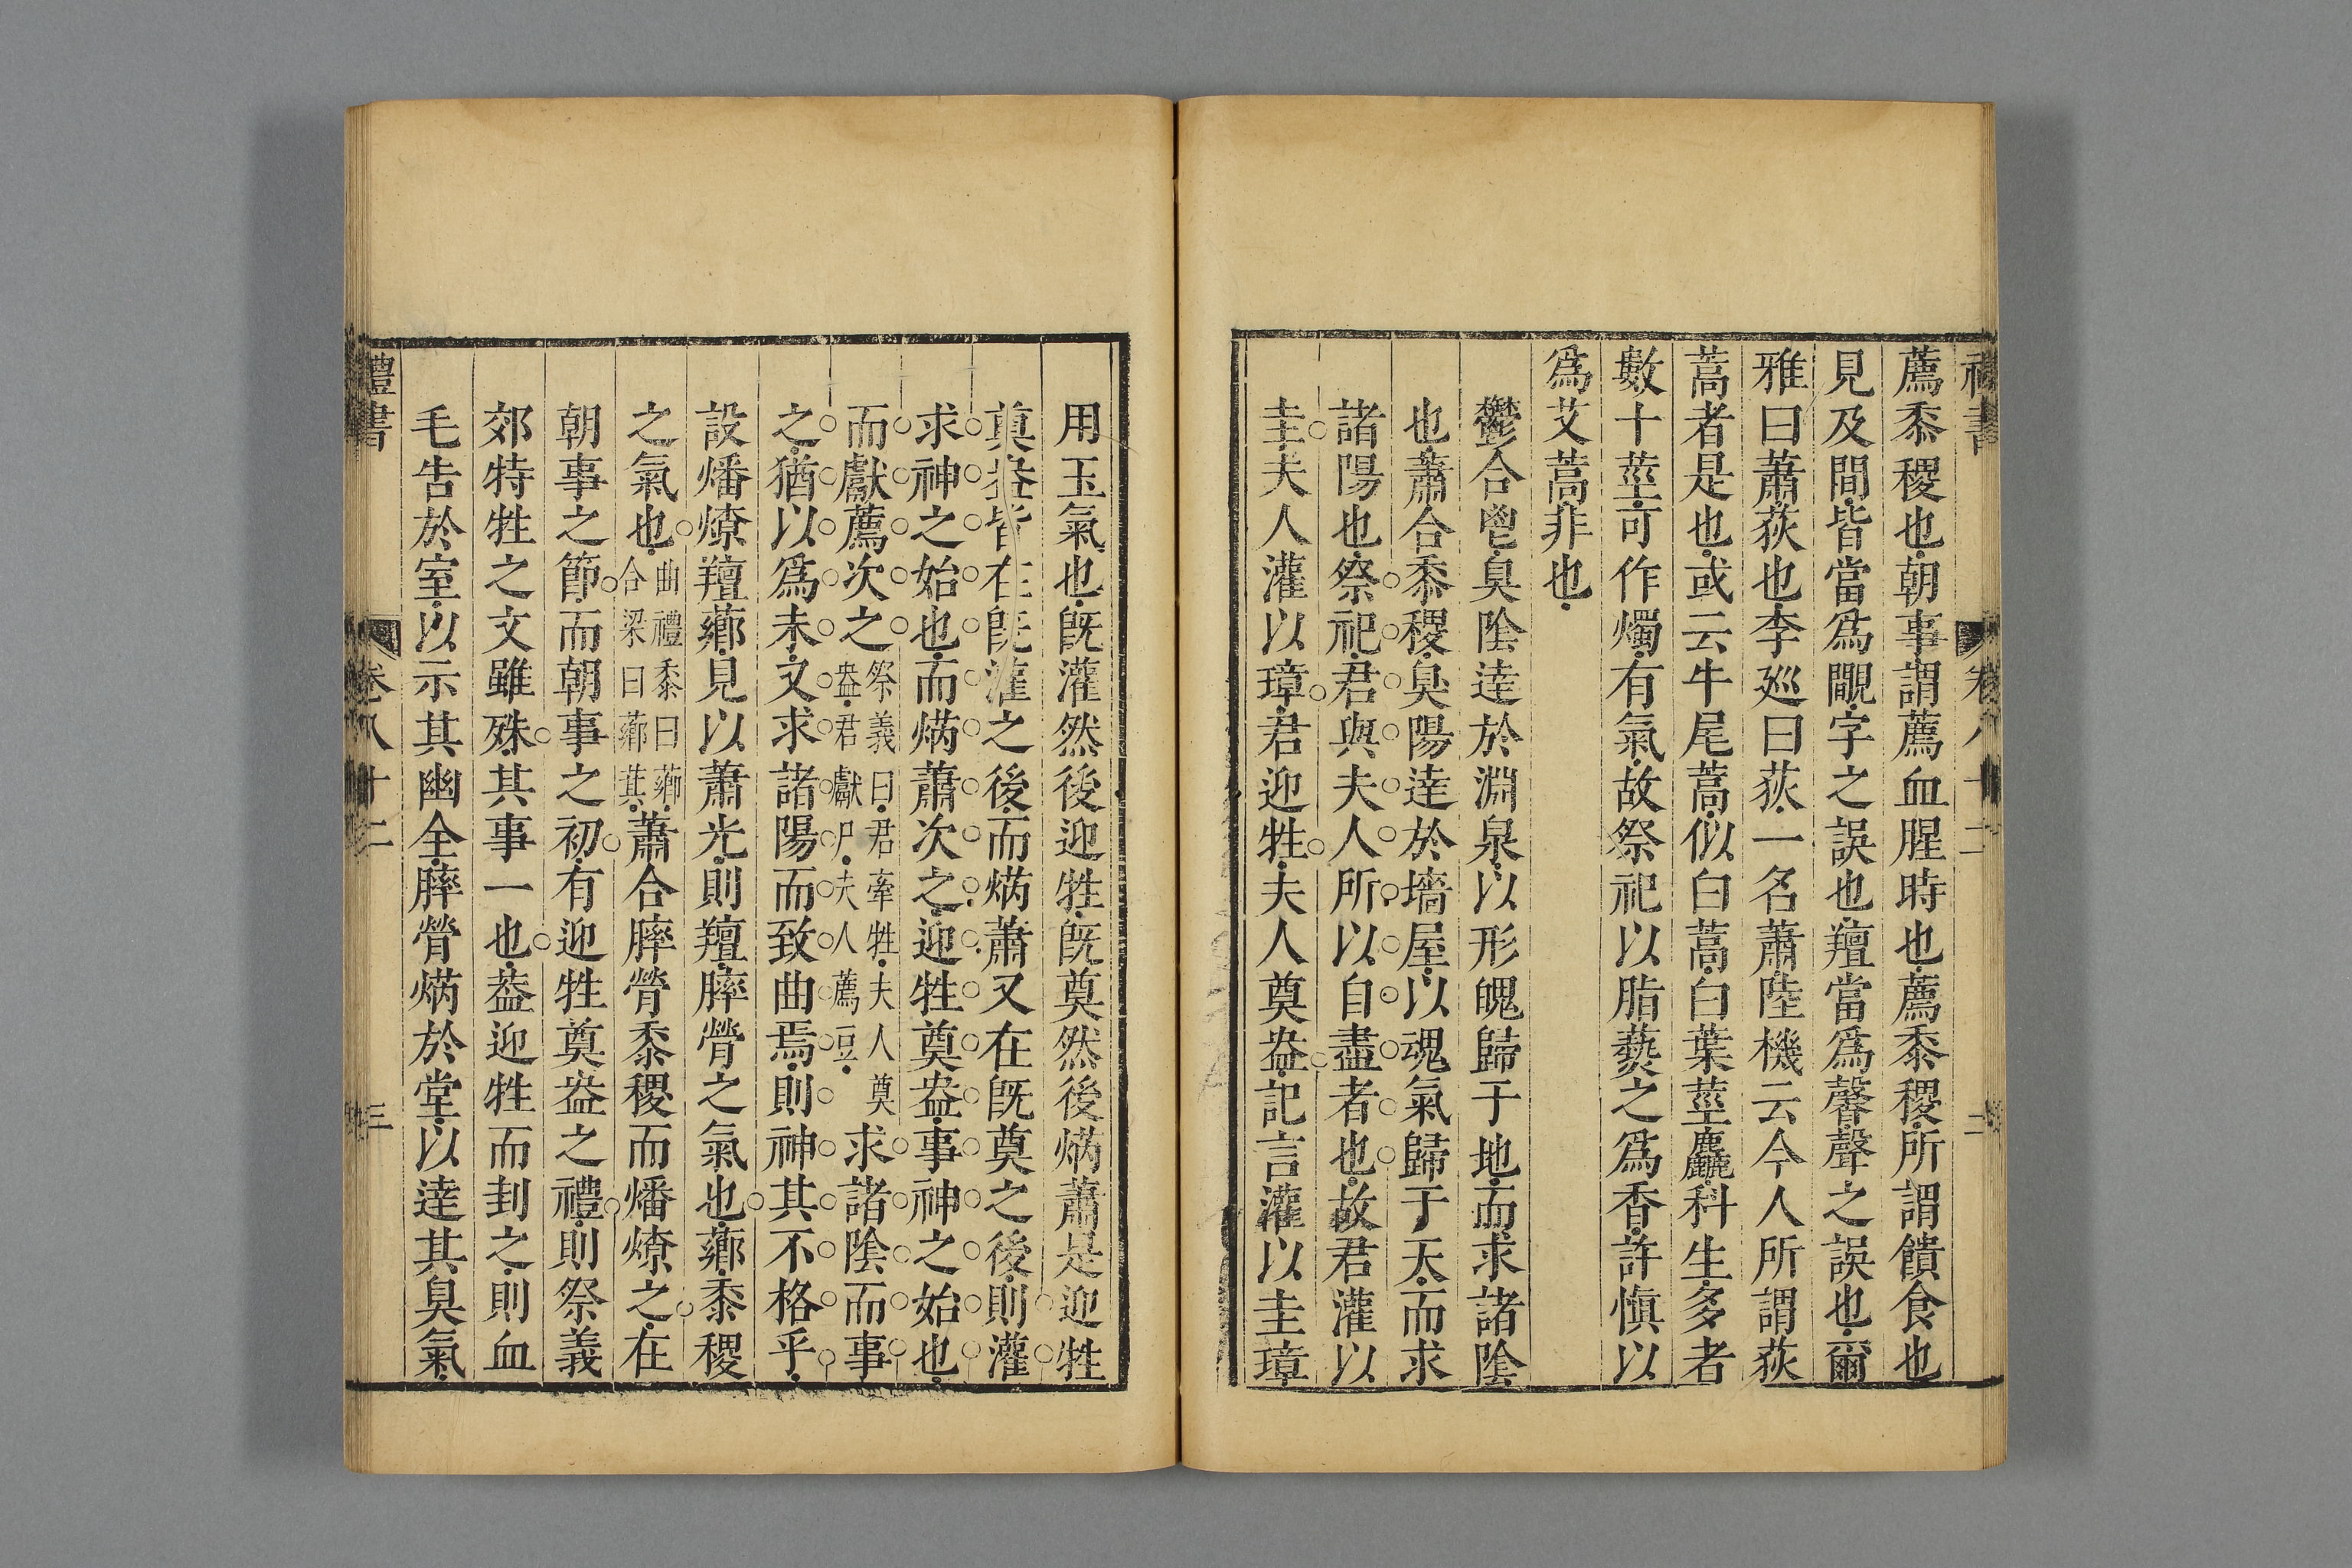 薦黍稷也朝事謂薦血腥時也薦黍稷所謂饋食也
見及間皆當爲覸字之誤也羶當爲馨聲之誤也爾
雅曰蕭荻也李廵曰荻一名蕭陸機云今人所謂荻
蒿者是也或云牛尾蒿似白蒿白葉莖麤科生多者
數十莖可作燭有氣故祭祀以脂爇之爲香許愼以
爲艾蒿非也
鬱合鬯臭隂逹於淵泉以形魄歸于地而求諸隂
也蕭合黍稷臭陽逹於墻屋以魂氣歸于天而求
諸陽也祭祀君與夫人所以自盡者也故君灌以
圭夫人灌以璋君迎牲夫人奠盎記言灌以圭璋
用玉氣也旣灌然後迎牲旣奠然後焫蕭是迎牲
奠盎皆在旣灌之後而焫蕭又在旣奠之後則灌
求神之始也而焫蕭次之迎牲奠盎事神之始也
而獻薦次之祭義曰君牽牲夫人奠盎君獻尸夫人薦豆求諸隂而事
之猶以爲未文求諸陽而致曲焉則神其不格乎
設燔燎羶薌見以蕭光則羶膟膋之氣也薌黍稷
之氣也曲禮黍曰薌合梁曰薌萁蕭合膟膋黍稷而燔燎之在
朝事之節而朝事之初有迎牲奠盎之禮則祭義
郊特牲之文雖殊其事一也葢迎牲而刲之則血
毛告於室以示其幽全膟膋焫於堂以逹其臭氣
禮書
卷八十二
三